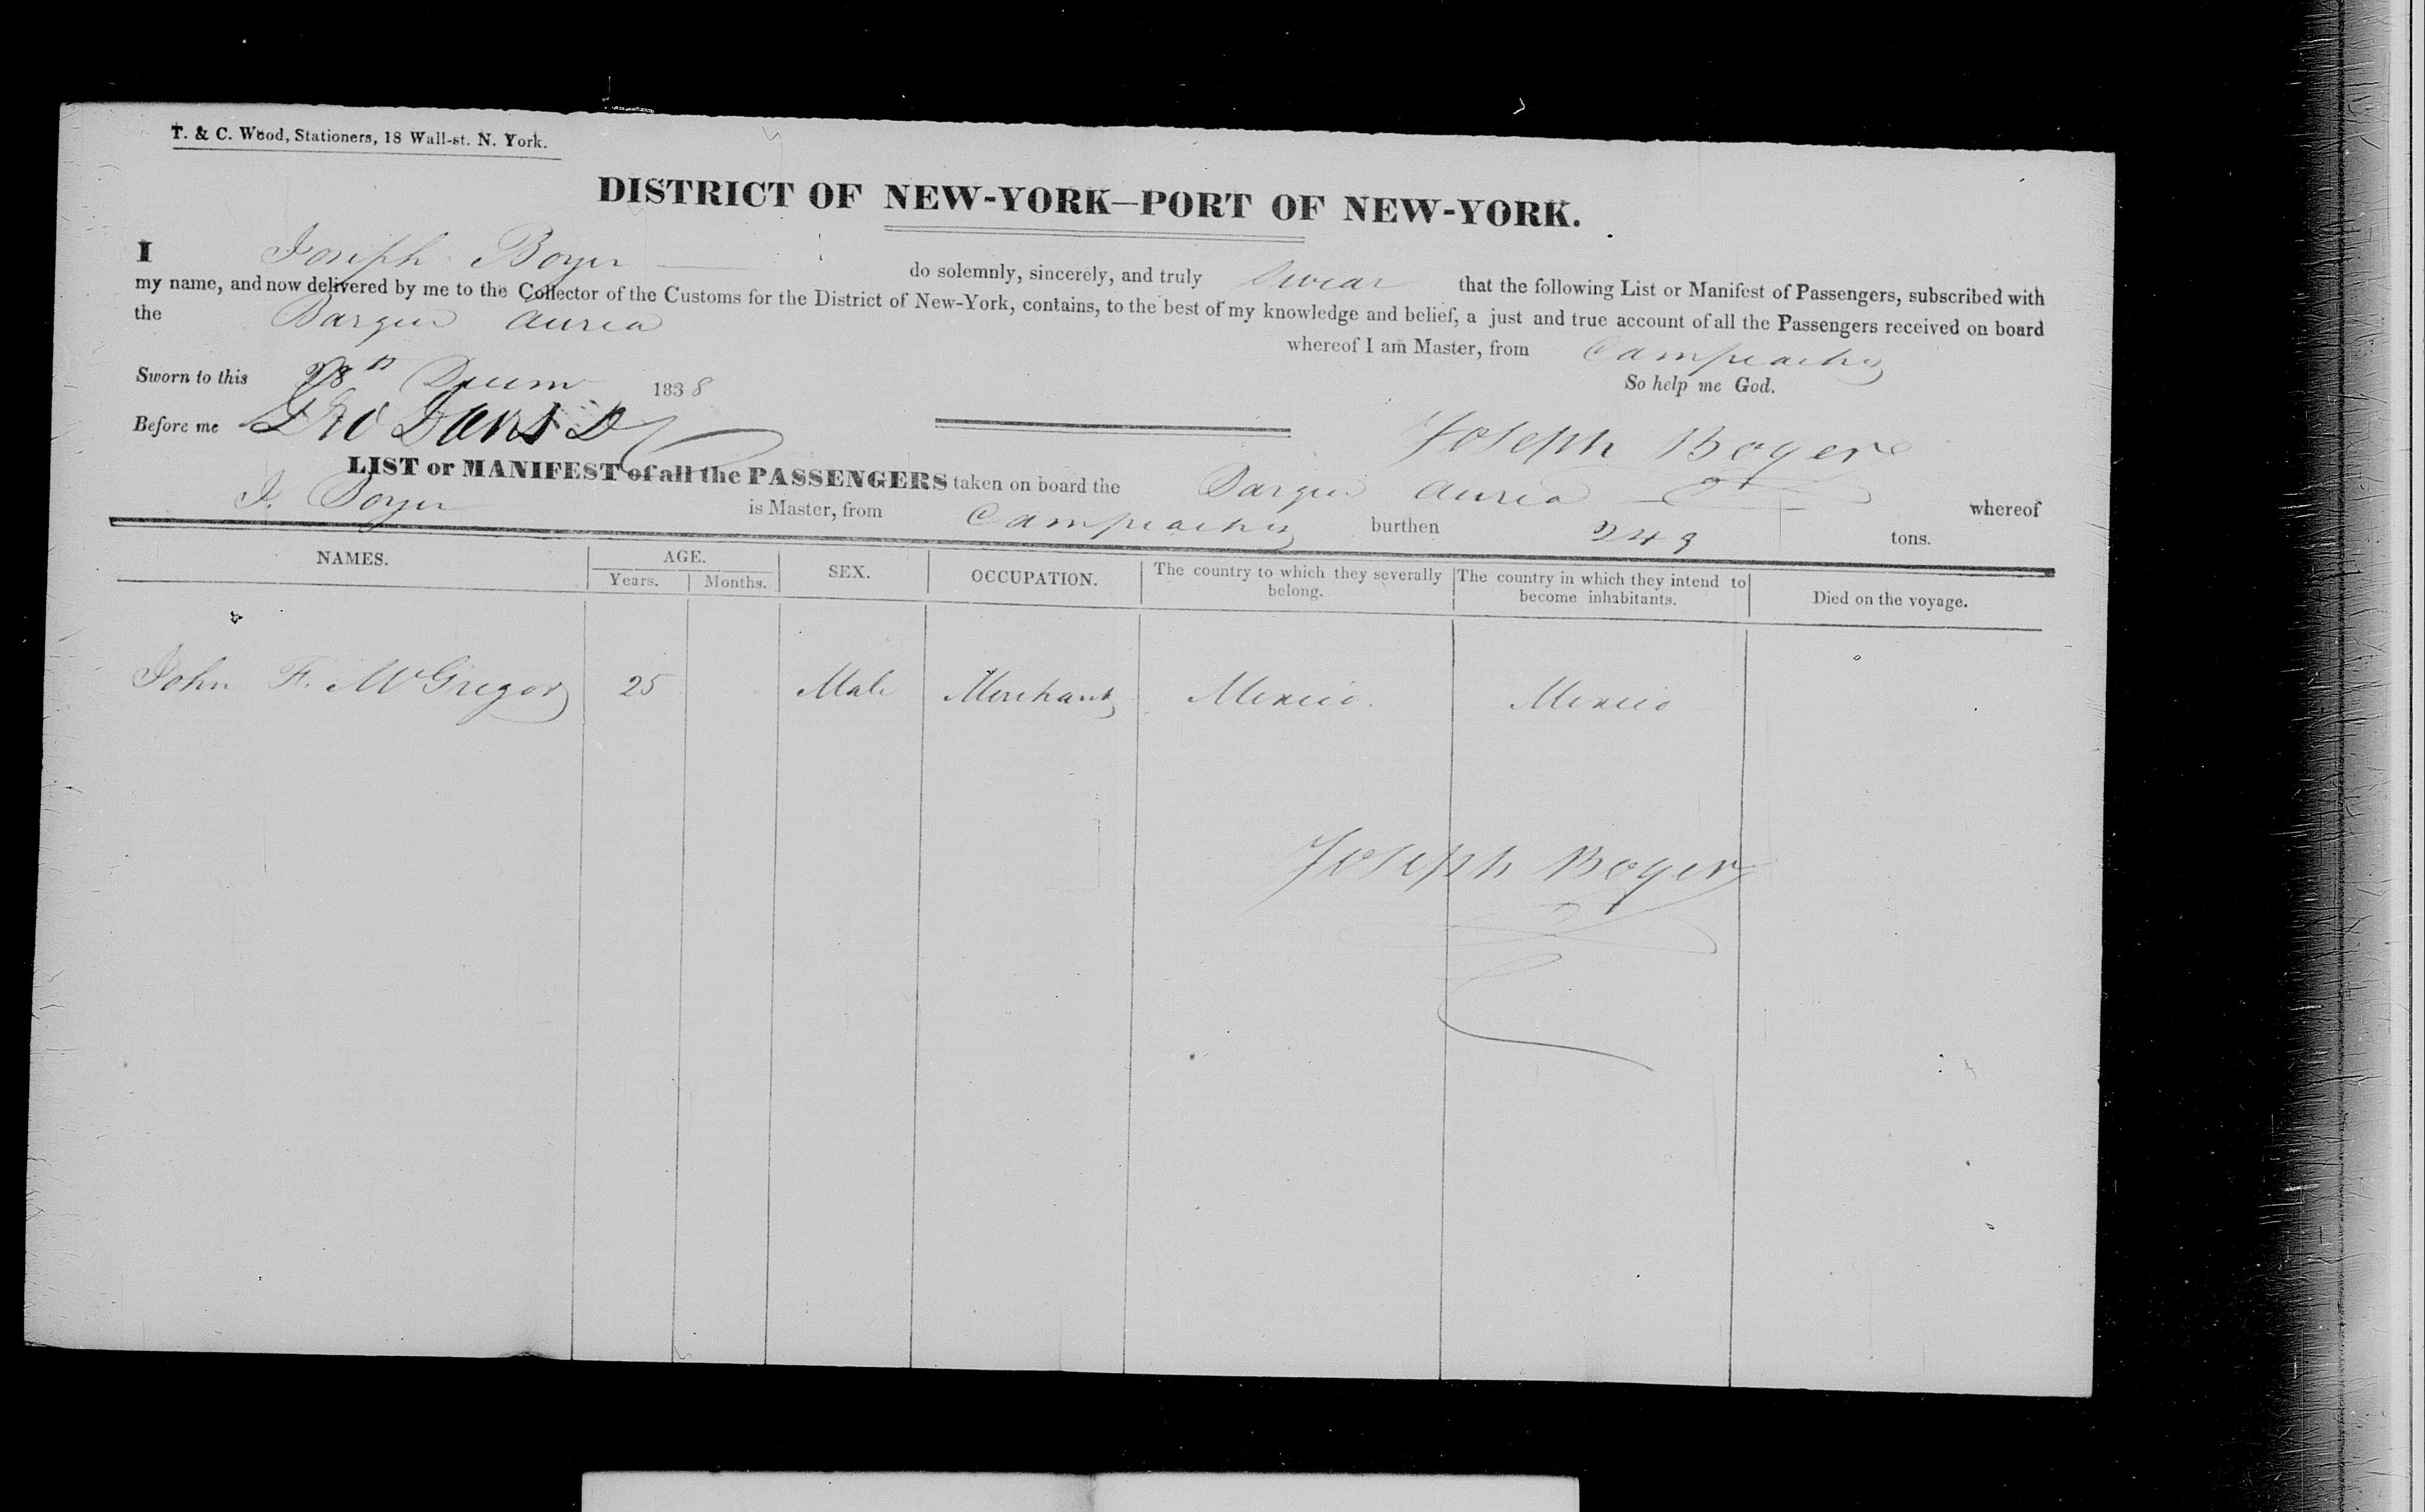 T. & C. Wood, Stationers, 18 Wall-st. N. York.
DISTRICT OF NEW-YORK—PORT OF NEW-YORK.
I Joseph Boyer do solemnly, sincerely, and truly swear that the following List or Manifest of Passengers, subscribed with
my name, and now delivered by me to the Collector of the Customs for the District of New-York, contains, to the best of my knowledge and belief, a just and true account of all the Passengers received on board
the Barque Aurea whereof I am Master, from Campeachy
Sworn to this 28th 1838 So help me God.
Before me Geo Davis D Joseph Boyer
LIST or MANIFEST of all the PASSENGERS taken on board the Barque Aurea whereof
J. Boyer is Master, from Campeachy burthen 249 tons.
NAMES. AGE. SEX. OCCUPATION. The country to which they severally belong. The country in which they intend to become inhabitants. Died on the voyage.
Years. Months.
John F. McGregor 25 Male Merchant Mexico. Mexico
Joseph Boyer